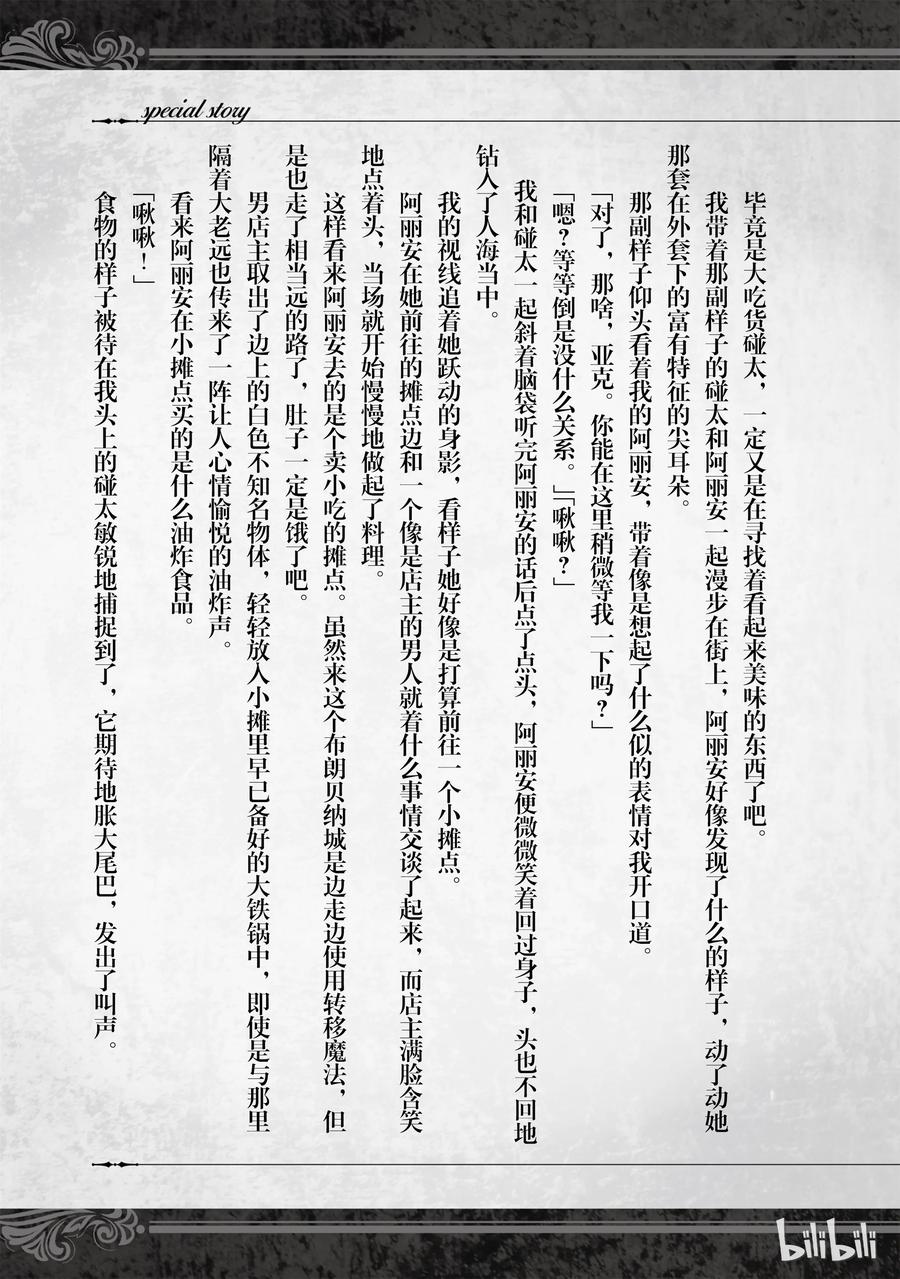 special story
毕竟是大吃货碰太，一定又是在寻找着看起来美味的东西了吧。
我带着那副样子的碰太和阿丽安一起漫步在街上，阿丽安好像发现了什么的样子，动了动她
那套在外套下的富有特征的尖耳朵。
那副样子仰头看着我的阿丽安，带着像是想起了什么似的表情对我开口道。
「对了，那啥，亚克。你能在这里稍微等我一下吗？」
「嗯？等等倒是没什么关系。」「啾啾？」
我和碰太一起斜着脑袋听完阿丽安的话后点了点头，阿丽安便微微笑着回过身子，头也不回地
钻入了人海当中。
我的视线追着她跃动的身影，看样子她好像是打算前往一个小摊点。
阿丽安在她前往的摊点边和一个像是店主的男人就着什么事情交谈了起来，而店主满脸含笑
地点着头，当场就开始慢慢地做起了料理。
这样看来阿丽安去的是个卖小吃的摊点。虽然来这个布朗贝纳城是边走边使用转移魔法，但
是也走了相当远的路了，肚子一定是饿了吧。
男店主取出了边上的白色不知名物体，轻轻放入小摊里早已备好的大铁锅中，即使是与那里
隔着大老远也传来了一阵让人心情愉悦的油炸声。
看来阿丽安在小摊点买的是什么油炸食品。
「啾啾！」
食物的样子被待在我头上的碰太敏锐地捕捉到了，它期待地胀大尾巴，发出了叫声。
bilibili